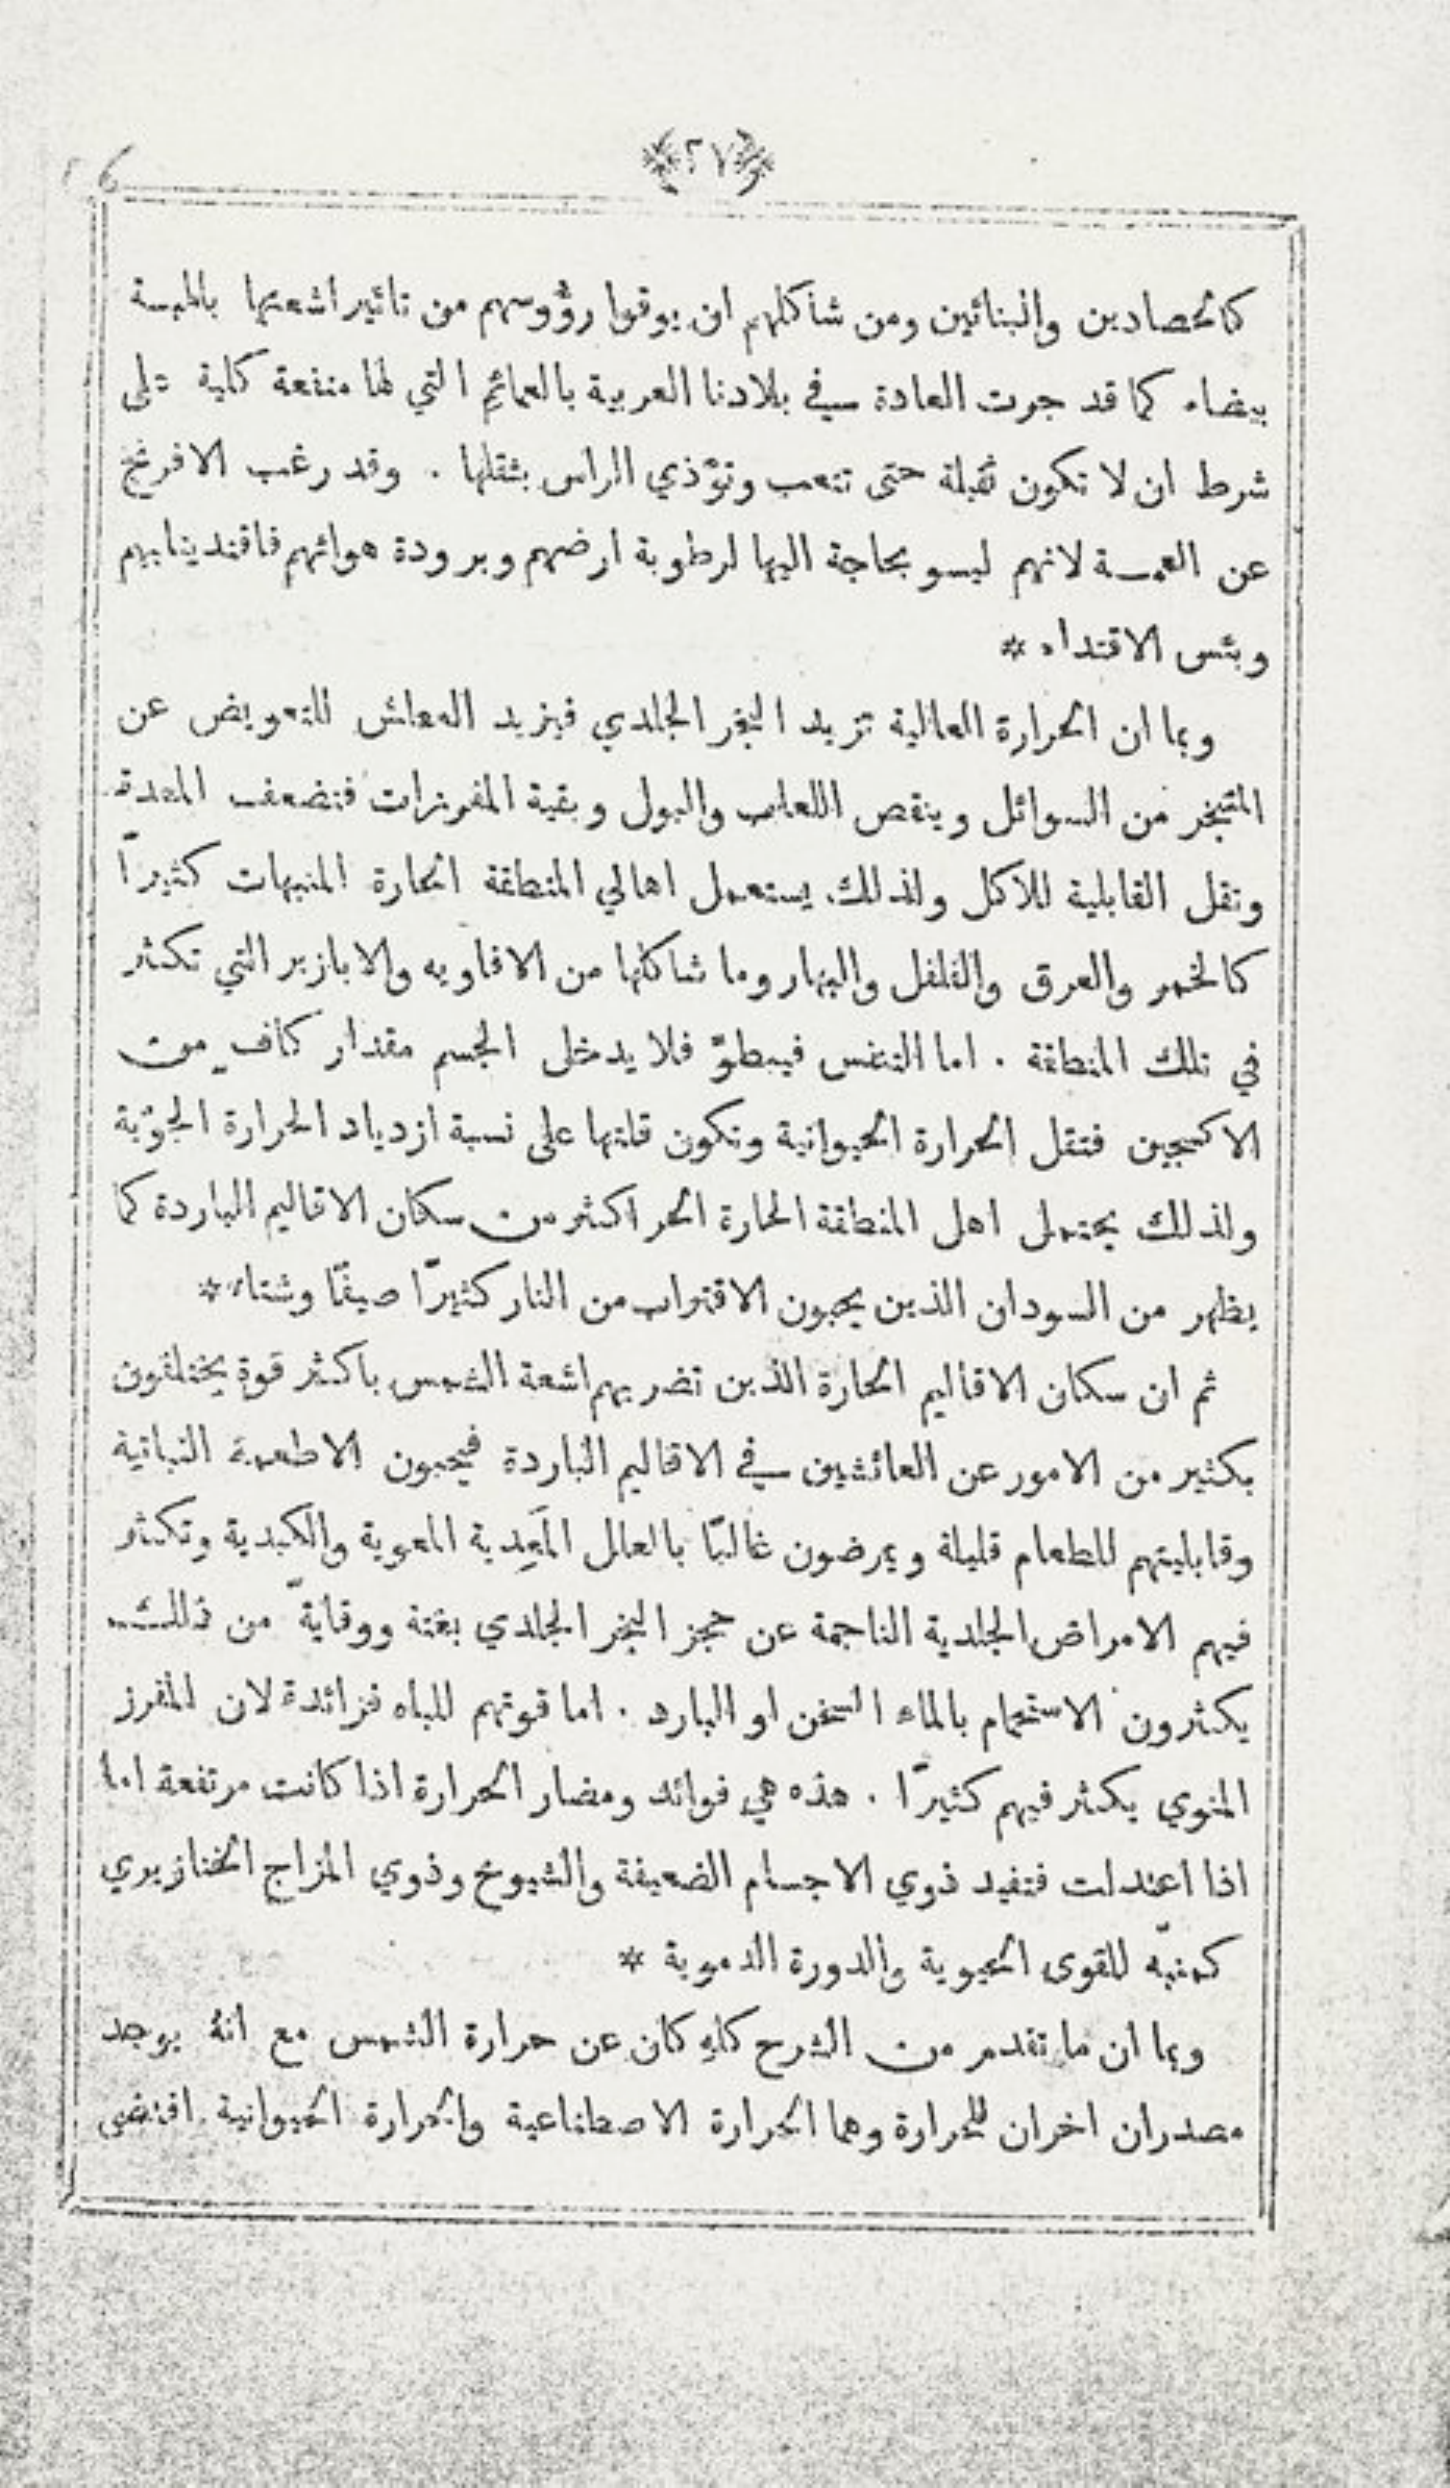 ﴿٢٧﴾
كالحصادين والبنائين ومن شاكلهم ان يوقوا رؤُوسهم من تاثير اشعتها بالبسة
بيضاء كما قد جرت العادة في بلادنا العربية بالعمائم التي لها منفعة كلية على
شرط ان لا تكون ثقيلة حتى تتعب وتؤْذي الراس بثقلها . وقد رغب الافرنج
عن العمــة لانهم ليسو بحاجة اليها لرطوبة ارضهم وبرودة هوائهم فاقتدينا بهم
وبئس الاقتداء *
وبما ان الحرارة العالية تزيد التبخر الجلدي فيزيد العطش للتعويض عن
المتبخر من السوائل وينقص اللعاب والبول وبقية المفرزات فتضعف المعدة
وتقل القابلية للاكل ولذلك يستعمل اهالي المنطقة الحارة المنبهات كثيرًا
كالخمر والعرق والفلفل والبهار وما شاكلها من الافاويه والابازير التي تكثر
في تلك المنطقة . اما التنفس فيبطؤ فلا يدخل الجسم مقدار كافٍ من
الاكسجين فتقل الحرارة الحيوانية وتكون قلتها على نسبة ازدياد الحرارة الجوّية
ولذلك يحتمل اهل المنطقة الحارة الحر اكثر من سكان الاقاليم الباردة كما
يظهر من السودان الذين يحبون الاقتراب من النار كثيرًا صيفًا وشتاء *
ثم ان سكان الاقاليم الحارة الذين تضربهم اشعة الشمس باكثر قوةٍ يختلفون
بكثير من الامور عن العائشين في الاقاليم الباردة فيحبون الاطعمة النباتية
وقابليتهم للطعام قليلة ويمرضون غالبًا بالعلل المَعِدية المعوية والكبدية وتكثر
فيهم الامراض الجلدية الناجمة عن حجز التبخر الجلدي بغتة ووقايةً من ذلك
يكثرون الاستحمام بالماء السخن او البارد . اما قوتهم للباه فزائدة لان المفرز
المنوي يكثر فيهم كثيرًا . هذه هي فوائد ومضار الحرارة اذا كانت مرتفعة اما
اذا اعتدلت فتفيد ذوي الاجسام الضعيفة والشيوخ وذوي المزاج الخنازيري
كمنبّه للقوى الحيوية والدورة الدموية *
وبما ان ما تقدم من الشرح كلهِ كان عن حرارة الشمس مع انهُ يوجد
مصدران اخران للحرارة وهما الحرارة الاصطناعية والحرارة الحيوانية اقتضى